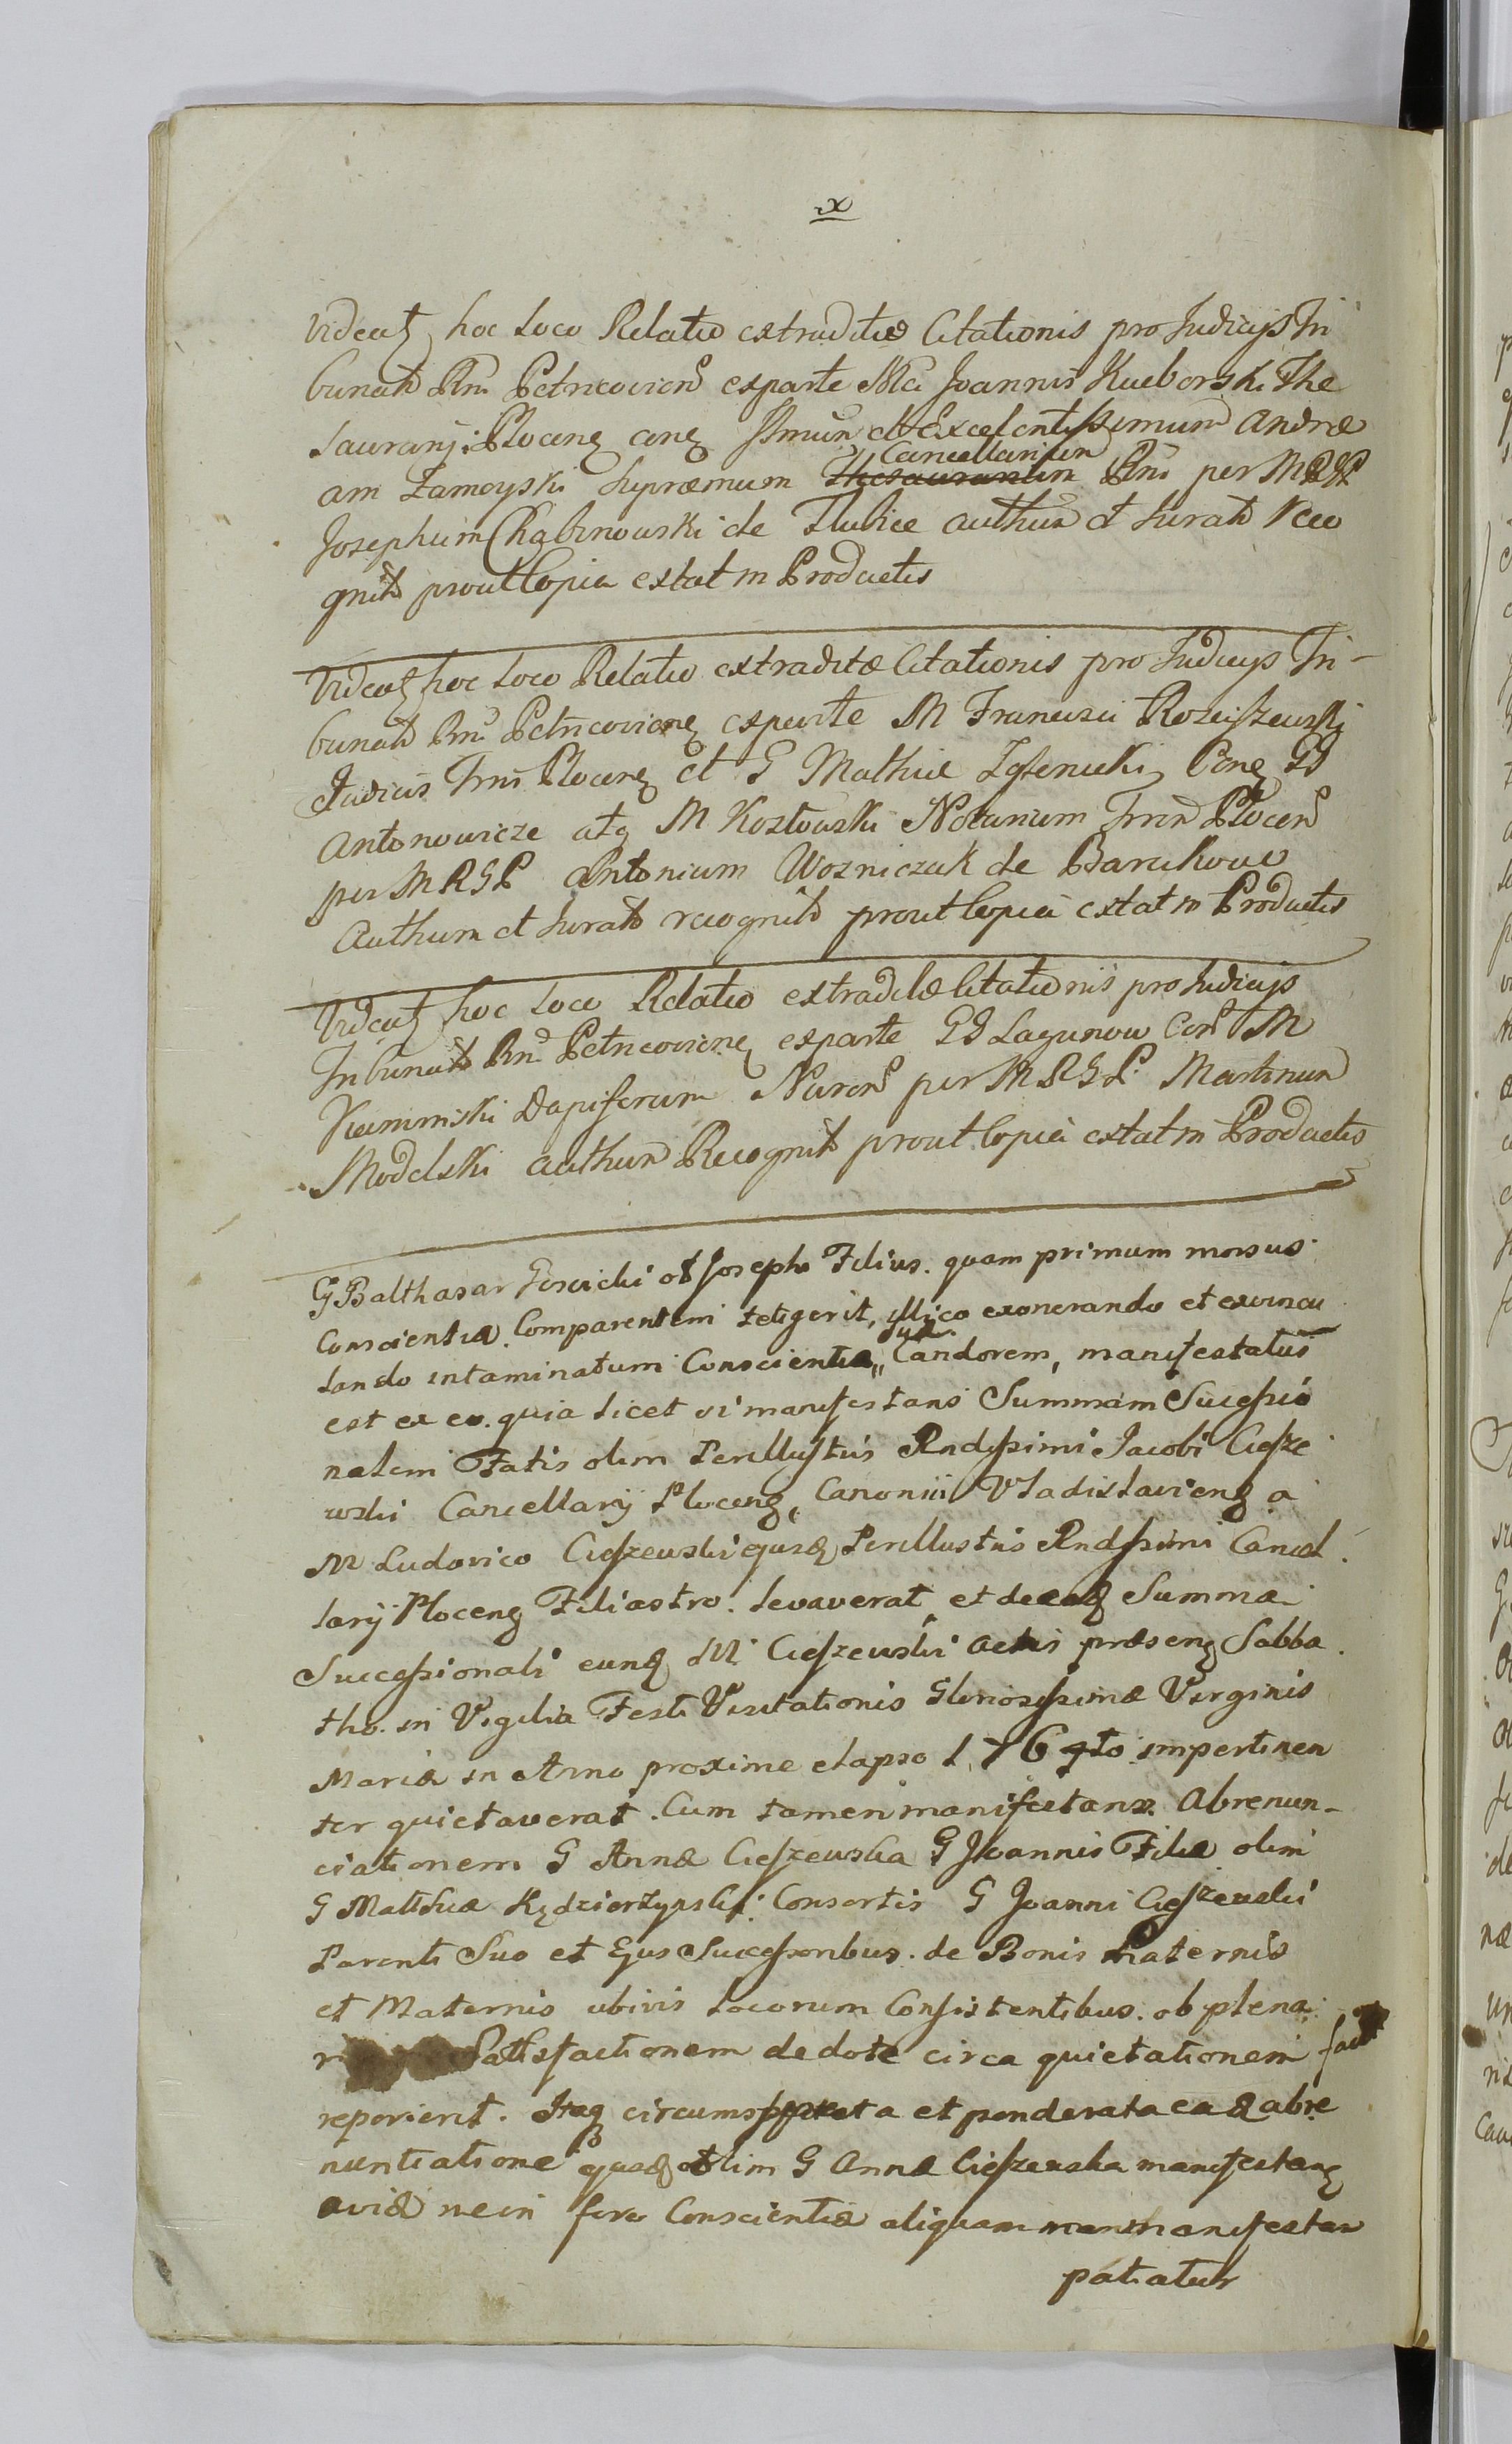 x
Videatz hoc loco Relatio extraditæ Citationis pro Judicijs Tri
bunatῦ Rni Petricovienῦ exparte Mci Joannis Kueborski The
saurarij Plocenῦ conῦ Illmum et Excelentissimum Andræ
am Zamoyski Supræmum Thesaurarium Cancellarium Rni per MRGP
Josephum Chabinowski de Tlubice authum et Jurat reco
gnit prout Copia extat in Productis
Videatz hoc loco Relatio extraditæ Citationis pro Judicijs Tri-
bunat Rni Petricovienῦ exparte M Francisci Rosciszewski
Judicis Trris Plocenῦ et G Mathiæ Zglenicki Conῦ GG
Antonowicze atq M Kozlowski Notarium Trrem Plocen
per MRGP Antonium Wozniczak de Barcikowo
Authum et Jurat recognit prout Copia extat in Productis
Videatz hoc loco Relatio extraditæ Citationis pro Judicijs
Tribunat Rni Petricovienῦ exparte GG Lagunow Con M
Kaminski Dapiferum Nuren per MRGP Martinum
Modelski authum Recognit prout Copia extat in Productis
G Balthasar olJoseph Filius. quam primum morsus
Conscientiæ Comparentem tetigerit, illico exonerando et exvincu
lando intaminatum Conscientiæ suæ Candorem, manifestatus
est ex eo. quia licet vi manifestans Summam Sucessio
nalem Fatis olim Perillustris Rndissimi Jacobi Ciesze
wski Cancellarij Plocenῦ, Canonici Vladislavienῦ a
M Ludovico Cieszewski ejusdῦ Perillustris Rndissimi Cancel
larij Plocenῦ Filiastro. levaverat, et de eadῦ Summa
Successionali eundῦ M Cieszewski Actis præsenῦ Sabba
tho. in Vigilia Festi Visitationis Gloriosissimæ Virginis
Mariæ in Anno proxime elapso 1764to impertinen
ter quietaverat. Cum tamen manifestans. Abrenun-
ciationem G Annæ Cieszewska G Joannis Filiæ olim
G Matthiæ Kędzierzynski Consortis G Joanni Cieszewski
Parenti Suo et Ejus Successoribus. de Bonis Paternis
et Maternis ubivis locorum Consistentibus. ob plena
Satisfactionem de dote circa quietationem
reperierit. Itaq circumspecta et ponderata eadῦ abre
nuntiatione quodῦ olim G Anna Cieszewska manifestanῦ
avia ne in foro Conscientiæ aliquam manifestan
patiatur